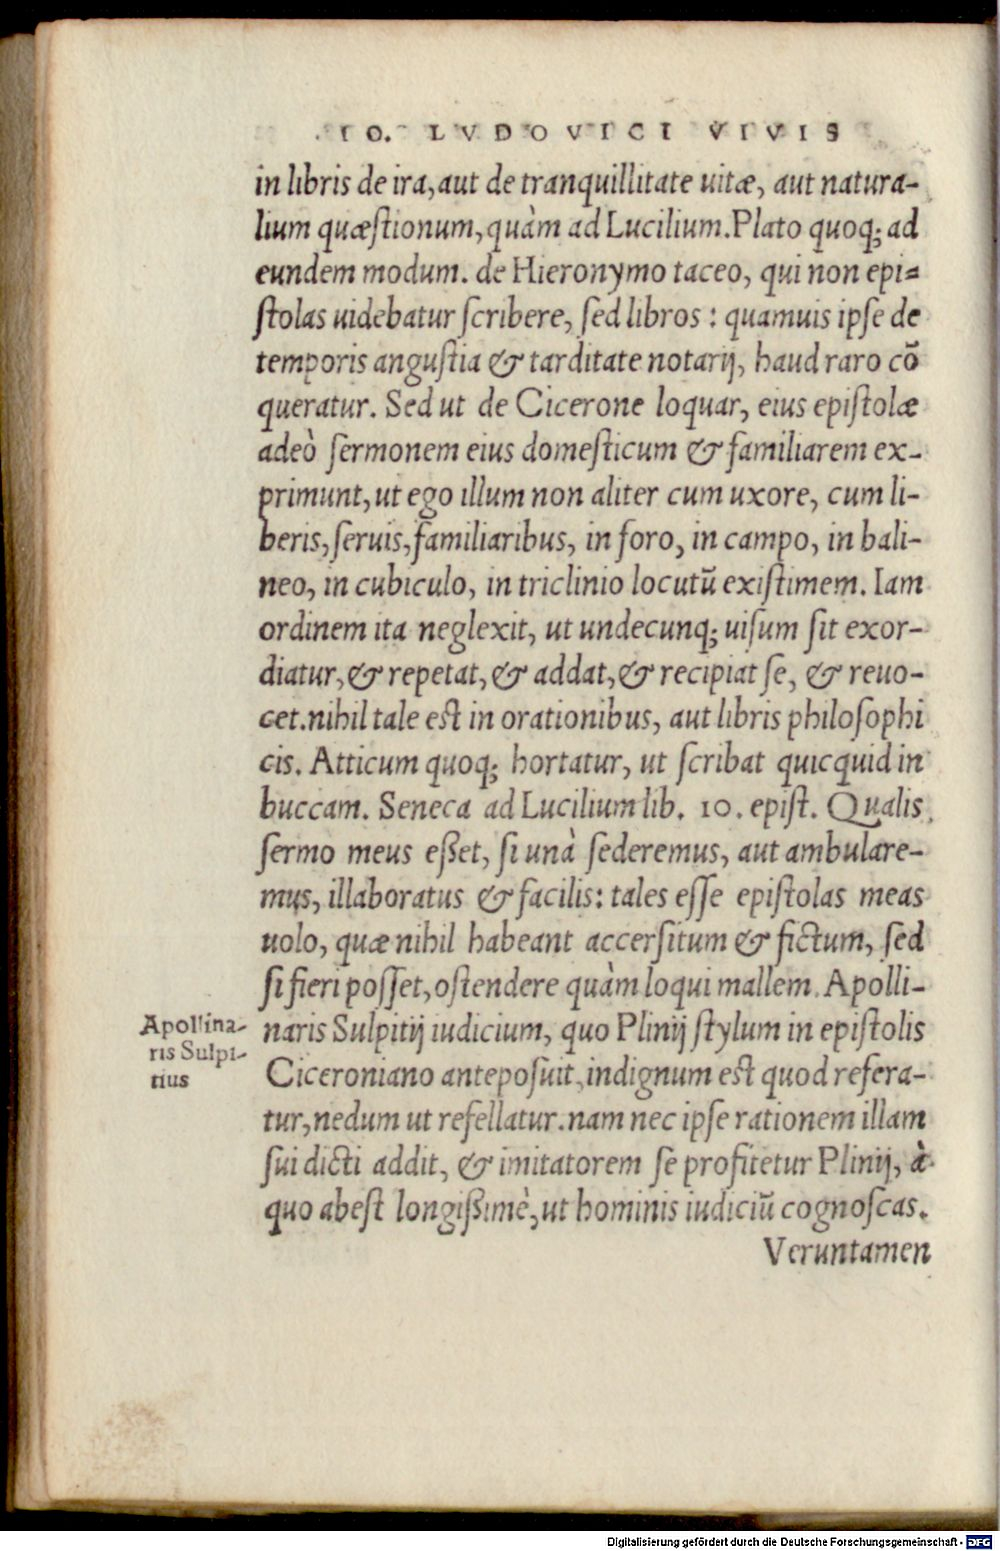 IO. LVDOVICI VIVIS
in libris de ira, aut de tranquillitate uitæ, aut natura-
lium quæſtionum, quàm ad Lucilium. Plato quoq; ad
eundem modum. de Hieronymo taceo, qui non epi-
ſtolas uidebatur ſcribere, ſed libros: quamuis ipſe de
temporis anguſtia & tarditate notarij, haud raro cō
queratur. Sed ut de Cicerone loquar, eius epiſtolæ
adeò ſermonem eius domeſticum & familiarem ex-
primunt, ut ego illum non aliter cum uxore, cum li-
beris, ſeruis, familiaribus, in foro, in campo, in bali-
neo, in cubiculo, in triclinio locutū exiſtimem. Iam
ordinem ita neglexit, ut undecunq; uiſum ſit exor-
diatur, & repetat, & addat, & recipiat ſe, & reuo-
cet. nihil tale est in orationibus, aut libris philoſophi
cis. Atticum quoq; hortatur, ut ſcribat quicquid in
buccam. Seneca ad Lucilium lib. 10. epiſt. Qualis
ſermo meus eßet, ſi unà ſederemus, aut ambulare-
mus, illaboratus & facilis: tales eſſe epiſtolas meas
uolo, quæ nihil habeant accerſitum & fictum, ſed
ſi fieri poſſet, oſtendere quàm loqui mallem. Apolli-
naris Sulpitij iudicium, quo Plinij ſtylum in epiſtolis
Ciceroniano antepoſuit, indignum est quod refera-
tur, nedum ut refellatur. nam nec ipſe rationem illam
ſui dicti addit, & imitatorem ſe profitetur Plinij, à
quo abeſt longißimè, ut hominis iudiciū cognoſcas.
Veruntamen
Apollina-
ris Sulpi-
tius
Digitalisierung gefördert durch die Deutsche Forschungsgemeinschaft - DFG